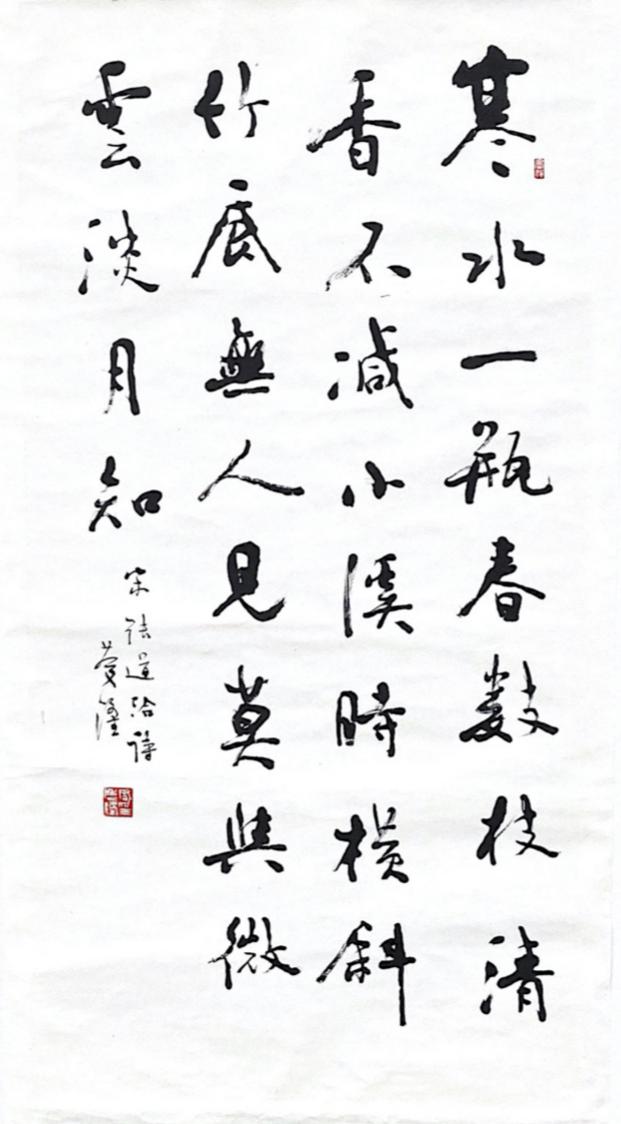 寒水一瓶春數枝清
香不減小溪時橫斜
竹底無人見莫與微
雲淡月知
宋 張道洽詩